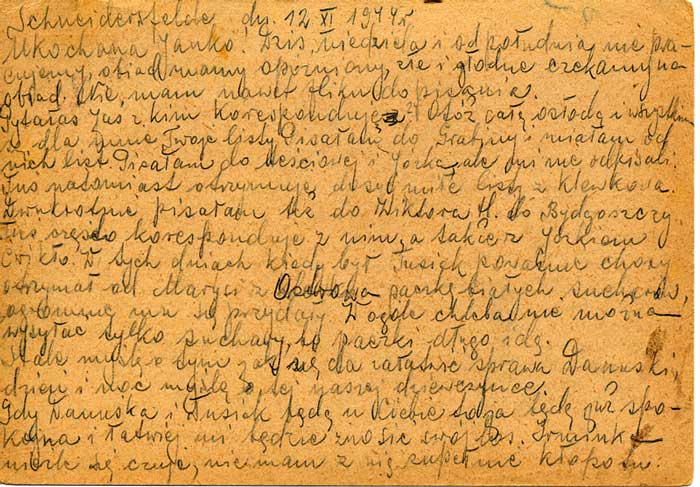 Schneidersfelde, dn. 12 XI 1944 r
Ukochana Janko! Dziś niedziela i od południa nie pra-
cujemy, obiad mamy opóźniony, złe i głodne czekamy na
obiad. Nie mam nawet śliny do pisania.
Pytałaś Jaś z kim koresponduję? Otóż całą osłodą i wszystkim
są dla mnie Twoje listy. Pisałam do Grażyny i miałam od
nich list. Pisałam do teściowej i Jórka, ale oni nie odpisali.
Tuś natomiast otrzymuje dosyć miłe listy z Klenkowa.
Dwukrotnie pisałam też do Wiktora H. do Bydgoszczy
Tuś często koresponduje z nim, a także z Jórkiem
W tych dniach kiedy był Tusiek poważnie chory
otrzymał od Marysi z paczkę białych sucharów,
ogromnie mu się przydały. W ogóle chleba nie można
wysyłać tylko suchary, bo paczki długo idą.
Stale myślę o tym jak się da załatwić sprawa Danuśki,
dzień i noc myślę o tej naszej dziewczynce.
Gdy Danuśka i Tusiek będą u Ciebie to ja będę już spo-
kojna i łatwiej mi będzie znosić swój los. Irusieńka
nieźle się czuje, nie mam z nią zupełnie kłopotu.